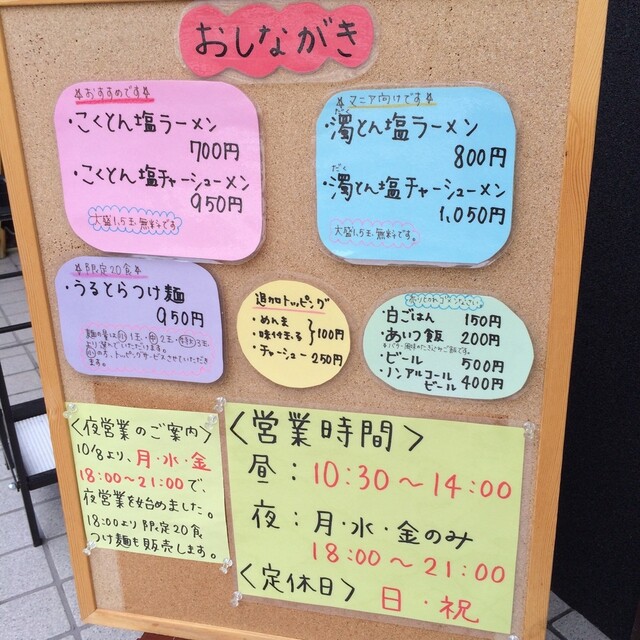 おしながき
☆おすすめです☆
・こくとん塩ラーメン
700円
・こくとん塩チャーシューメン
950円
大盛1.5玉無料です
☆マニア向けです☆
だく
・濁とん塩ラーメン
800円
だく
・濁とん塩チャーシューメン
1,050円
大盛1.5玉無料です。
☆限定20食☆
・うるとらつけ麺
950円
麺の量は小1玉、中2玉、特大3玉、
より選んでいただけます。
小の方、トッピングサービスさせていただき
ます。
追加トッピング
・めんま
・味付玉子
}100円
・チャーシュー 250円
・白ごはん 150円
・あいつ飯 200円
・ビール 500円
・ノンアルコール
ビール 400円
〈夜営業のご案内〉
10/8より、月・水・金
18:00〜21:00で、
夜営業を始めました。
18:00より限定20食
つけ麺も販売します。
〈営業時間〉
昼：10:30〜14:00
夜：月・水・金のみ
18:00〜21:00
〈定休日〉日・祝